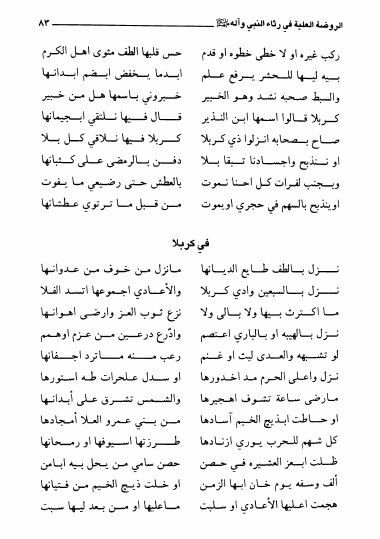 الروضة العلية في رثاء النبي وآله ﷺ ٨٣
ركب غيره او لا خطى خطوه او قدم حس قلبها الطف مثوى اهل الكرم
بيه ليها للحشر يرفع علم ابدما يخفض ابضم ابدانها
والسبط صحبه نشد وهو الخبير خبروني باسمها هل من خبير
كربلا قالوا اسمها ابن النذير قال فيها نلتقي ابجيمانها
صاح بصحابه انزلوا ذي كربلا كربلا فيها نلاقي كل بلا
او نتذبح واجسادنا تبقا بلا دفن بالرمضى على كثبانها
ويجنب لفرات كل احنا نموت بالعطش حتى رضيعي ما يفوت
اوينذبح بالسهم في حجري اويموت من قبل ما ترتوي عطشانها
في كربلا
نزل بالطف طايع الديانها مانزل من خوف من عدوانها
نزل بالسبعين وادي كربلا والأعادي اجموعها اتسد الفلا
ما اكترث بيها ولا بالى ولا نزع ثوب العز وارضى اهوانها
نزل بالهيبه او بالباري اعتصم وادّرع درعين من عزم اوهمم
لو تشبهه والعدى ليث او غنم رعب منه ماترد اجفانها
نزل واعلى الحرم مد اخدورها او سدل علحرات طه استورها
مارضى ساعة تشوف اهجيرها والشمس تشرق على أبدانها
او حاطت ابذيج الخيم آسادها من بني عمرو العلا أمجادها
كل شهم للحرب يوري ازنادها طرزتها اسيوفها او رمحانها
ظلت ابعز العشيره في حصن حصن سامي من يحل بيه ابامن
ألف وسفه يوم خان ابها الزمن او خلت ذيج الخيم من فتيانها
هجمت اعليها الأعادي او سلبت ماعليها او من بعد ليها سبت